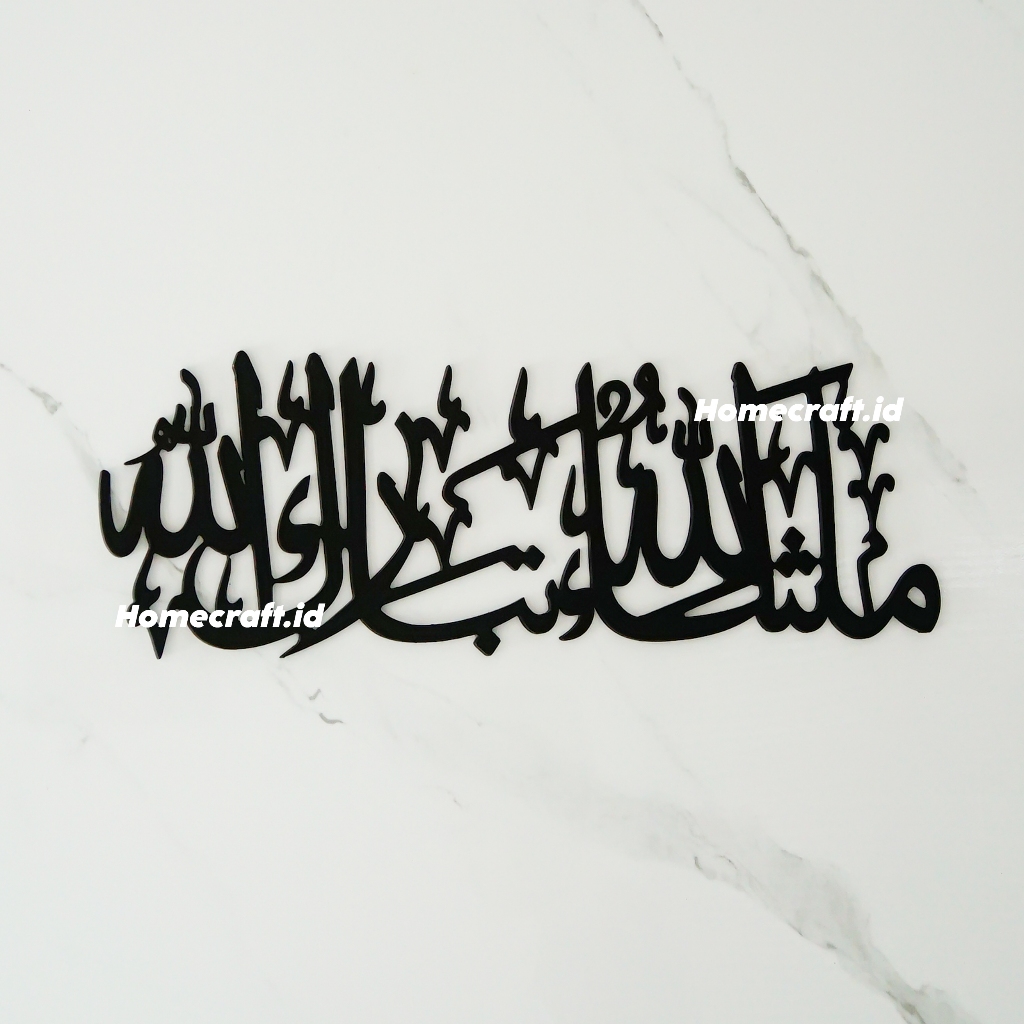 Homecraft.id
ما شاء الله تبارك الله
Homecraft.id